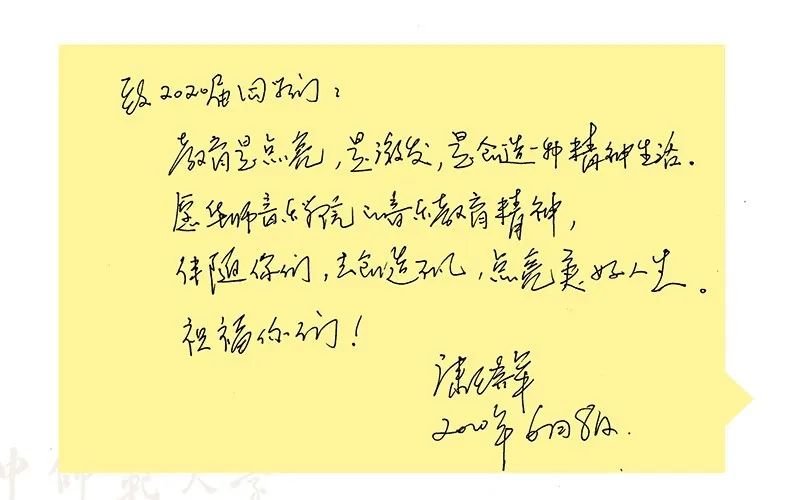 致2020届同学们：
教育是点亮，是激发，是创造一种精神生活.
愿华师音乐学院的音乐教育精神，
伴随你们，去创造不凡，点亮美好人生。
祝福你们！
2020年6月8日.
中师范大学